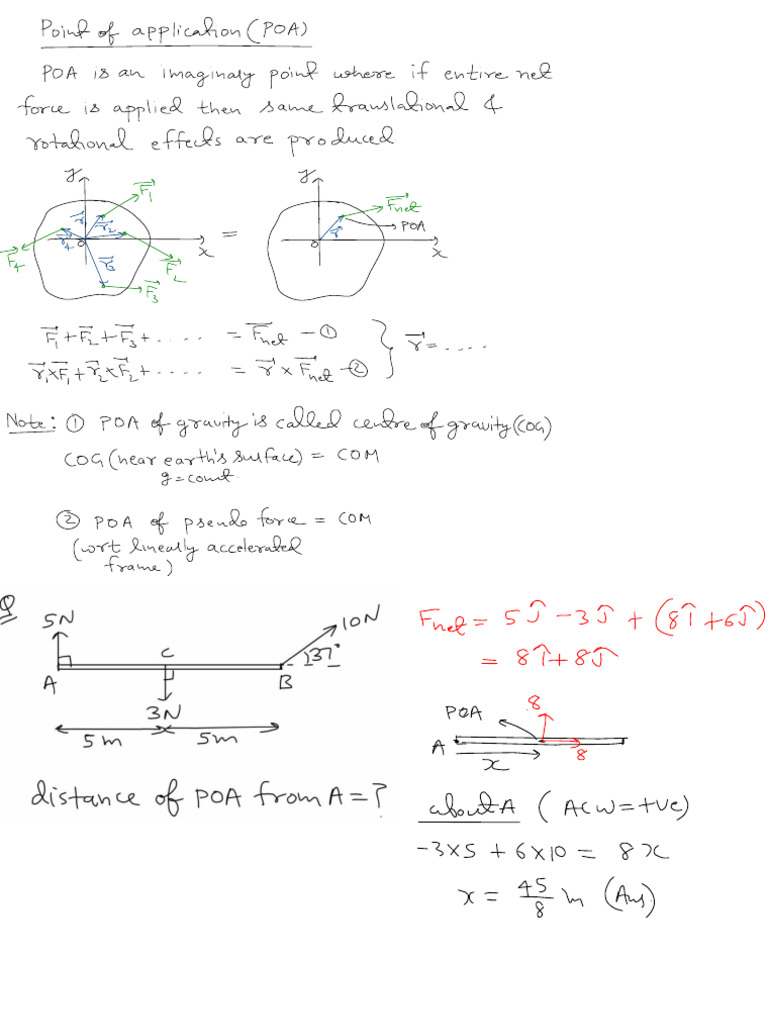 Point of application (POA)
POA is an imaginary point where if entire net
force is applied then same translational &
rotational effects are produced
y
F⃗₁
r⃗₁
r⃗₂
r⃗₄
O
x
F⃗₄
r⃗₃
F⃗₂
F⃗₃
=
y
F⃗net
POA
r⃗
O
x
F⃗₁ + F⃗₂ + F⃗₃ + .... = F⃗net – ①
r⃗₁×F⃗₁ + r⃗₂×F⃗₂ + .... = r⃗ × F⃗net – ②
} r⃗ = ....
Note: ① POA of gravity is called centre of gravity (COG)
COG (near earth's surface) = COM
g = const
② POA of pseudo force = COM
(wrt linearly accelerated
frame)
Q
5N
10N
C
37°
A
B
3N
5m
5m
distance of POA from A = ?
Fnet = 5ĵ – 3ĵ + (8î + 6ĵ)
= 8î + 8ĵ
8
POA
A
8
x
about A (ACW = +ve)
-3×5 + 6×10 = 8x
x = 45/8 m (Ans)